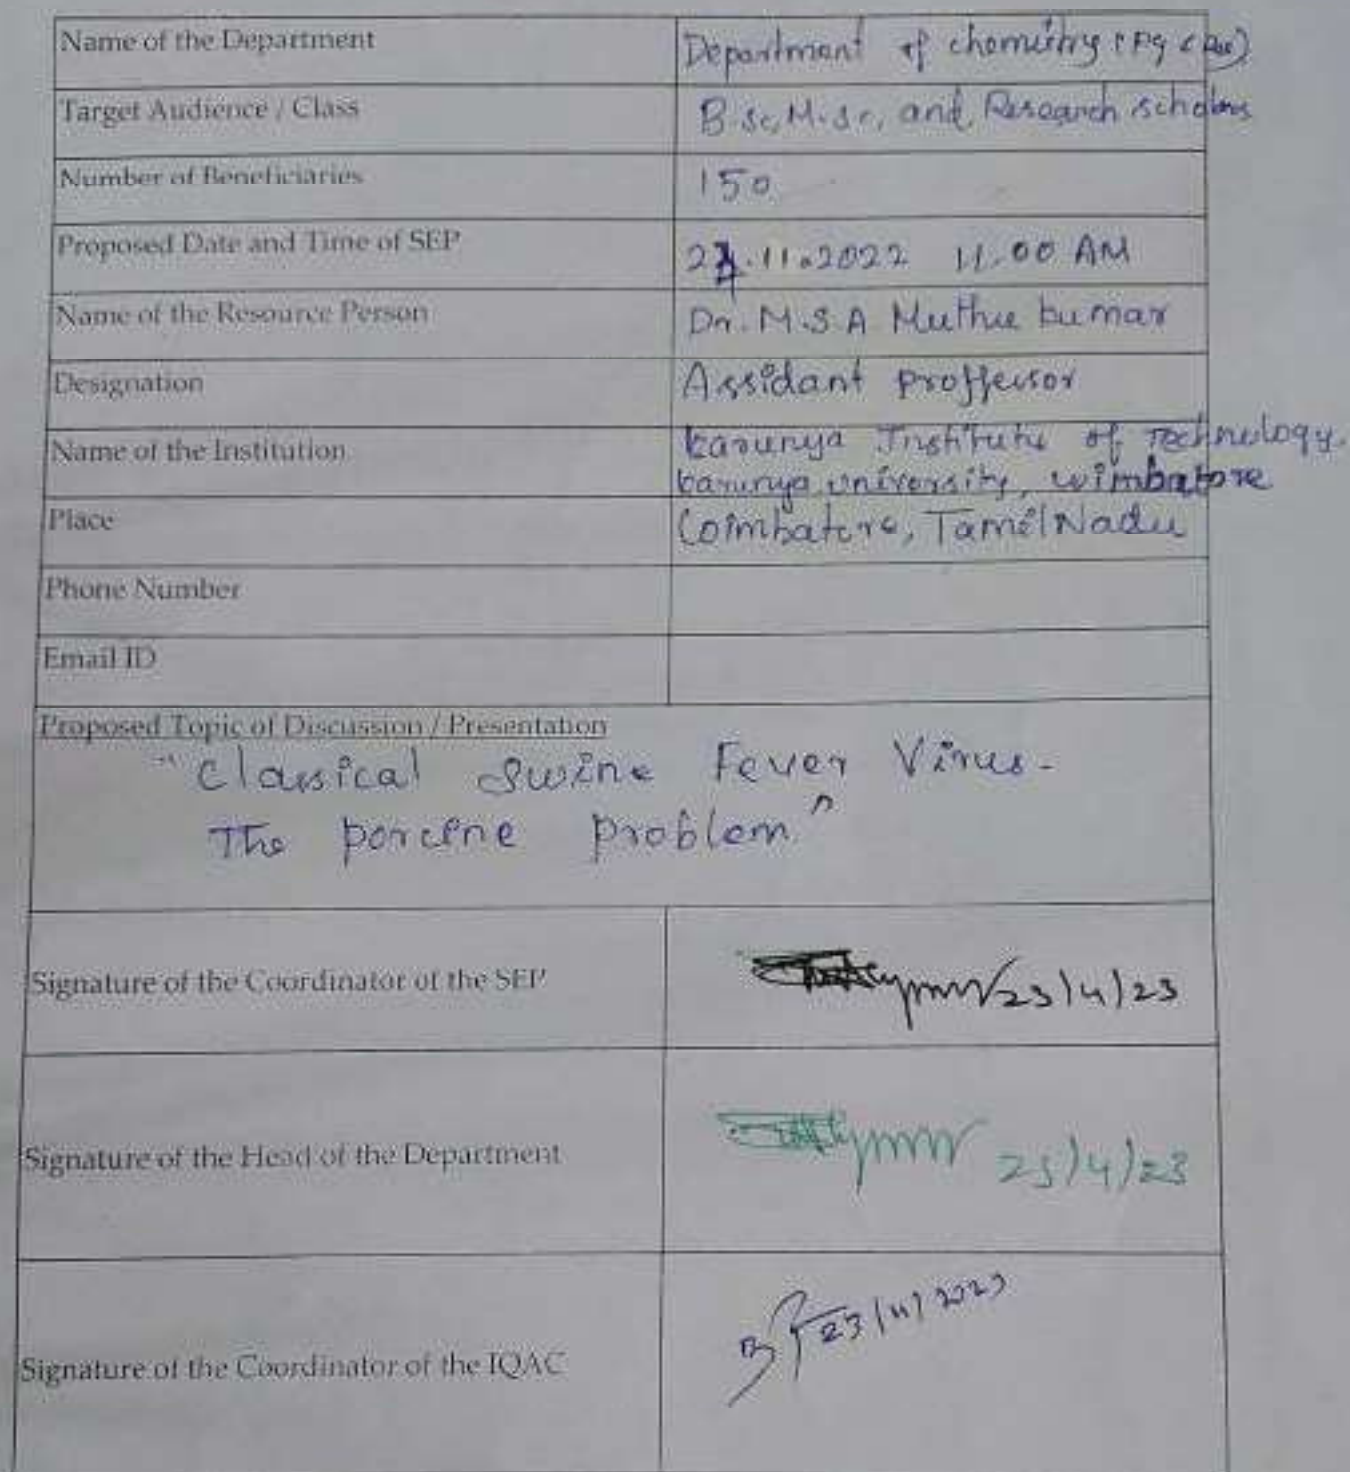 Name of the Department Department of chemistry (PG &
Target Audience / Class B.Sc, M.Sc, and, Research scholars
Number of Beneficiaries 150
Proposed Date and Time of SEP .11.2022 11.00 AM
Name of the Resource Person Dr. M.S.A Muthu kumar
Designation Assidant proffessor
Name of the Institution karunya Institute of Technology.
karunya university, coimbatore
Place Coimbatore, Tamil Nadu
Phone Number
Email ID
Proposed Topic of Discussion / Presentation
"Classical Swine Fever Virus-
The porcine problem"
Signature of the Coordinator of the SEP 23/4/23
Signature of the Head of the Department 23/4/23
Signature of the Coordinator of the IQAC